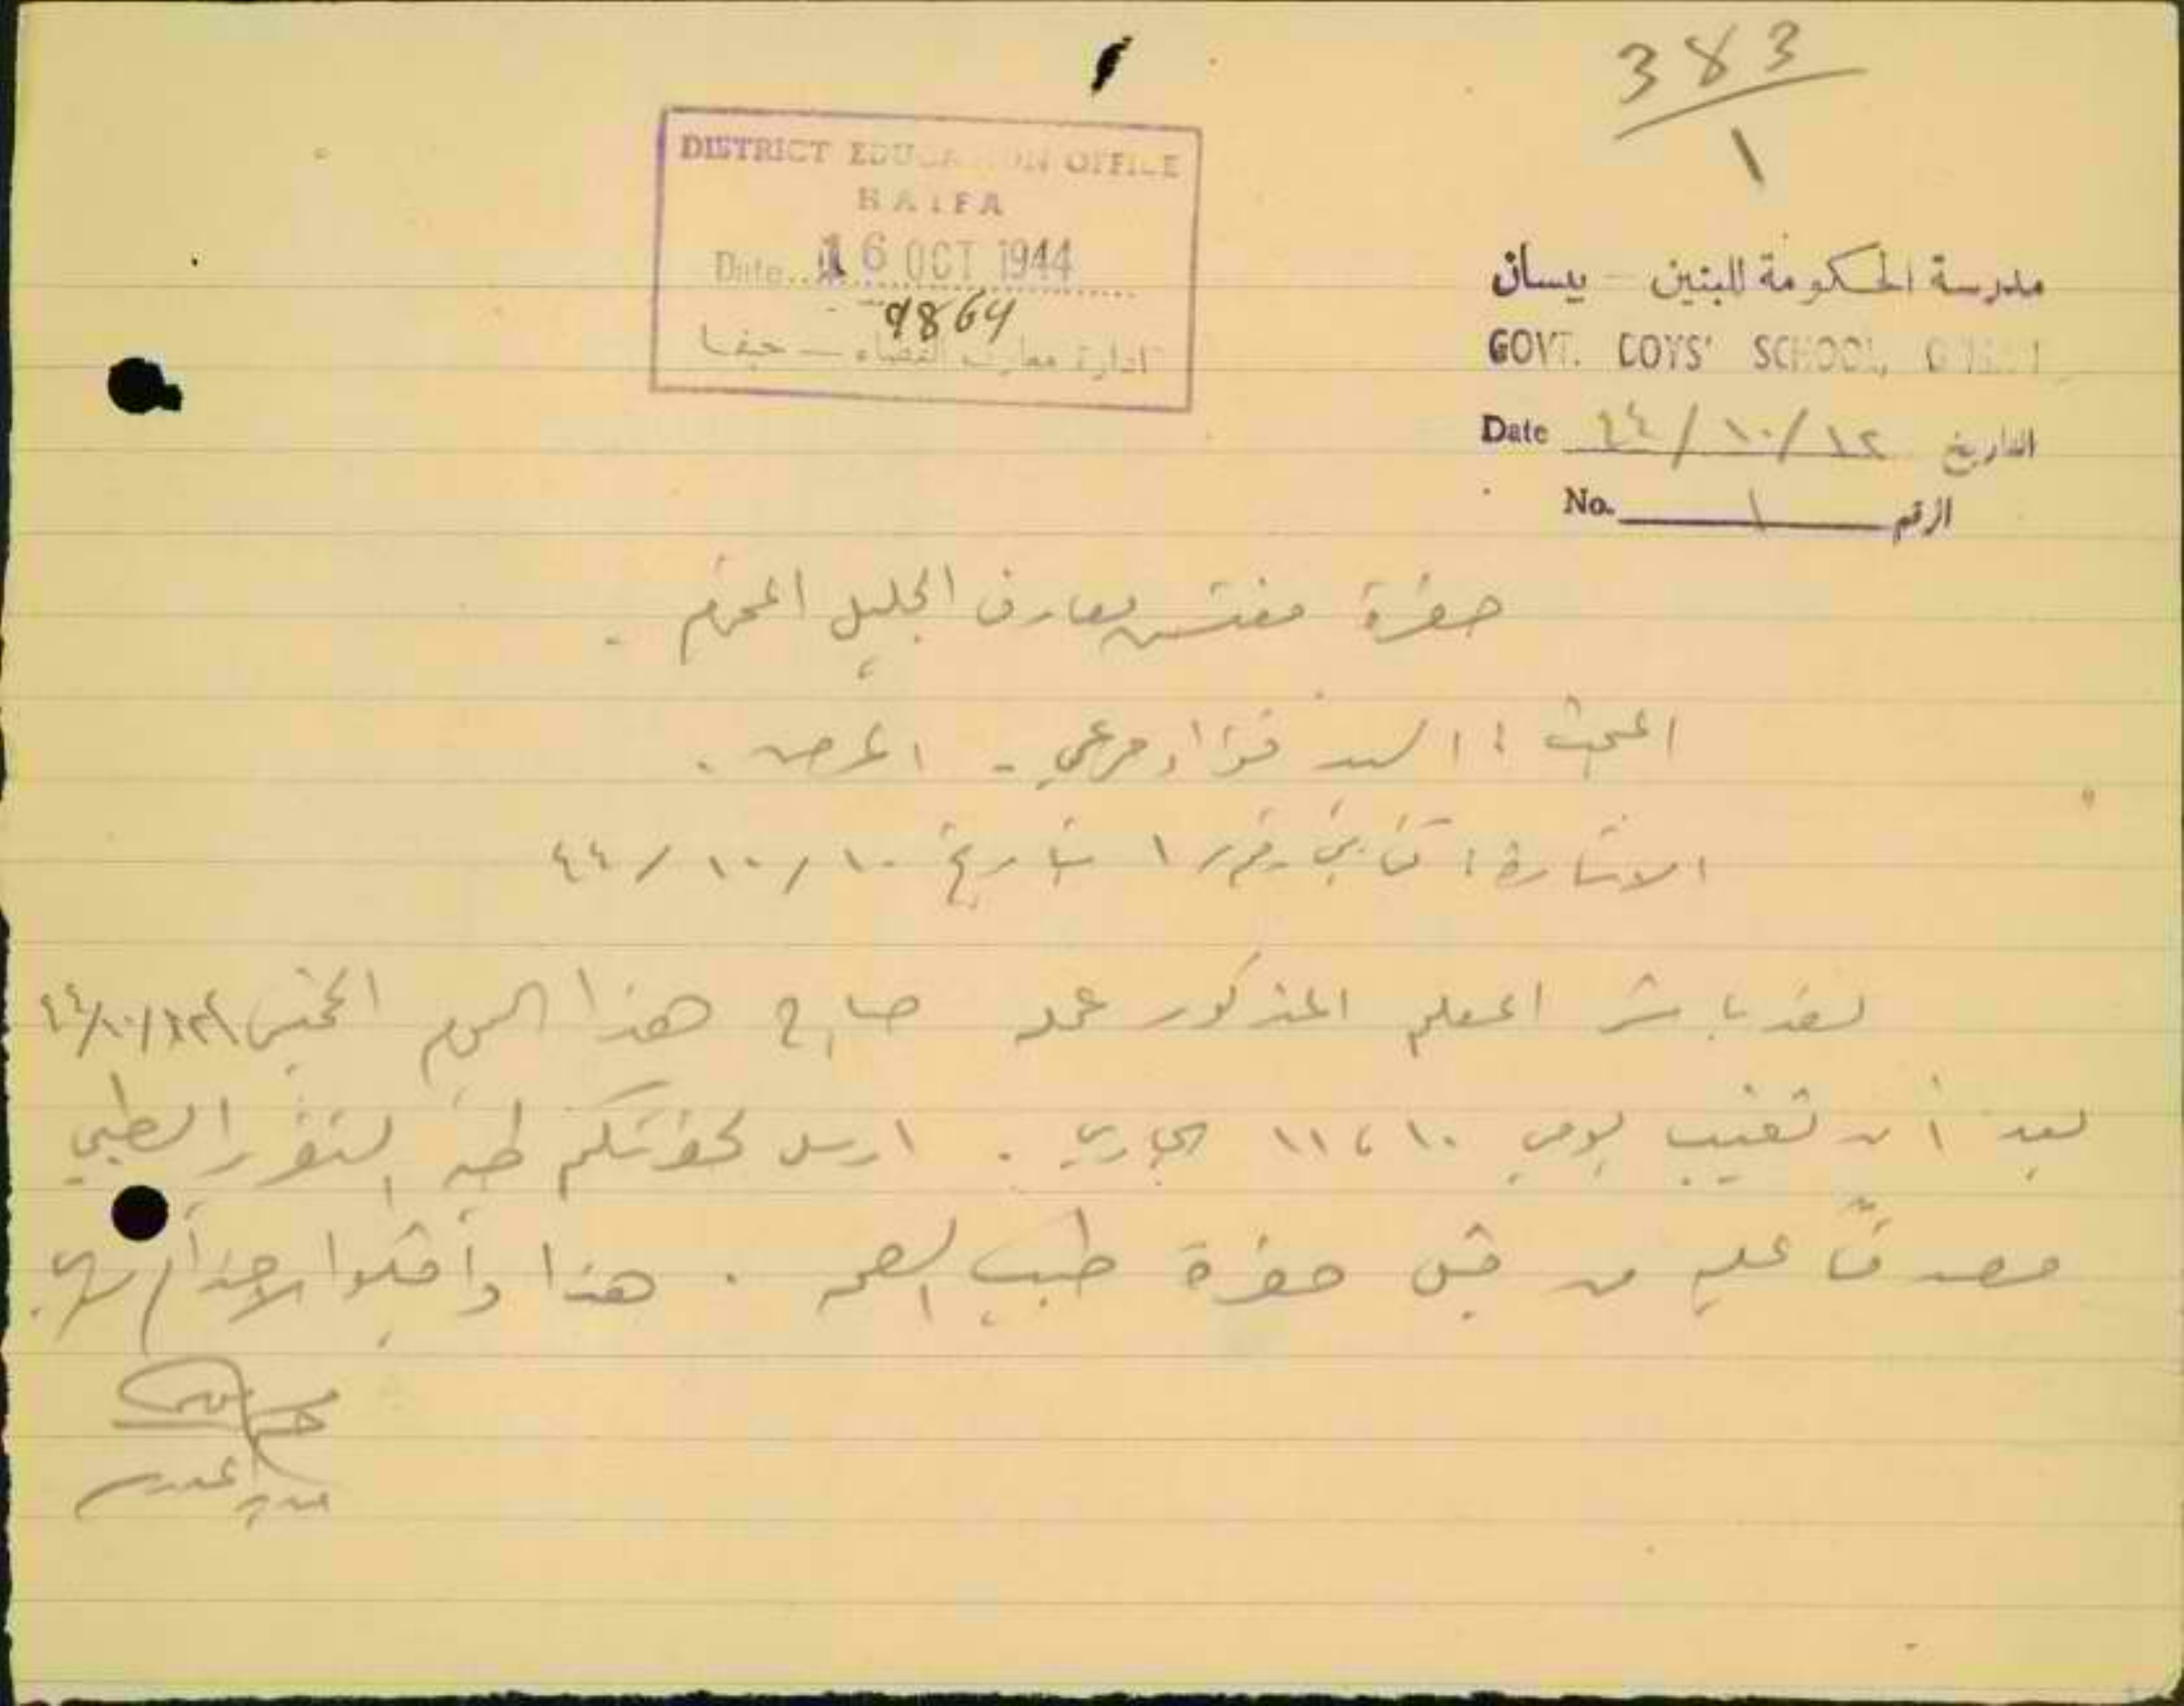 383
١
DISTRICT EDUCATION OFFICE
HAIFA
Date.. 16 OCT 1944
9864
ادارة معارف القضاء — حيفا
مدرسة الحكومة للبنين - بيسان
GOVT. BOYS' SCHOOL,
Date ٤٤/١٠/١٢ التاريخ
No. ١ الرقم
حضرة مفتش معارف الجليل المحترم .
المبحث : السيد فؤاد مرعي - المرض .
الاشارة : كتابي رقم ١ بتاريخ ١٠/١٠/٤٤
لقد باشر المعلم المذكور عمله صباح هذا اليوم الخميس ٤٤/١٠/١٢
بعد أن تغيب يومي ١٠ ، ١١ الجاري . ارسل لحضرتكم طيه التقرير الطبي
مصدقاً عليه من قبل حضرة طبيب الصحة . هذا وأقبلوا الاحترام سيدي .
مدير المدرسة